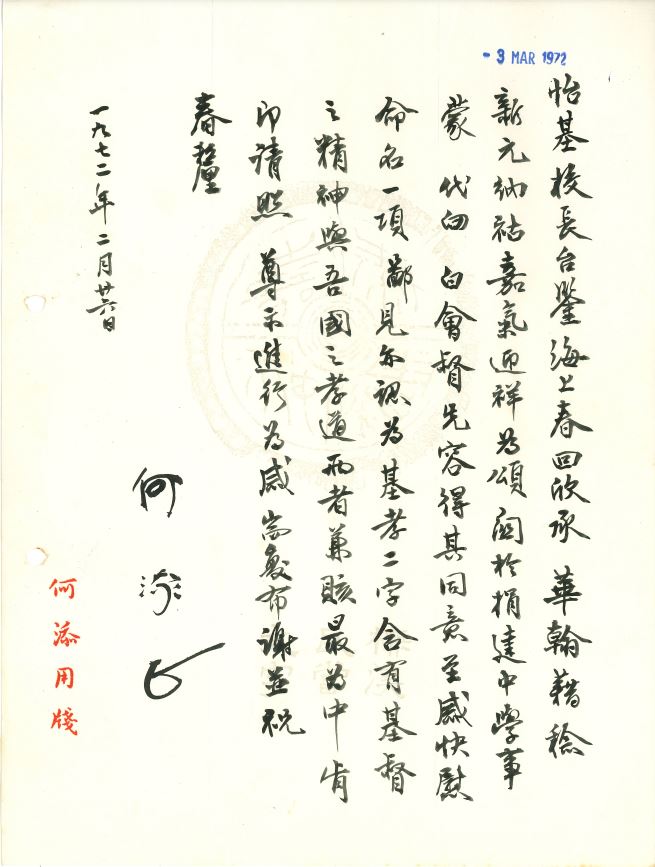 - 3 MAR 1972
怡基校長台鑒海上春回欣承 華翰藉稔
新元納祜嘉氣迎祥為頌關於捐建中學事
蒙 代向 白會督先容得其同意至感快慰
命名一項 鄙見亦認為基孝二字含有基督
之精神與吾國之孝道兩者兼賅最為中肯
即請照 尊示進行為感耑復布謝並祝
春釐
何添
一九七二年二月廿六日
何添用牋